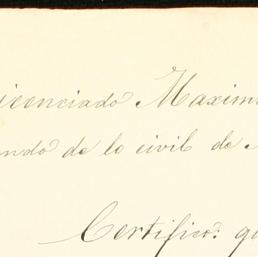 icenciado Maxim
ndo de lo civil de
Certifico: qu